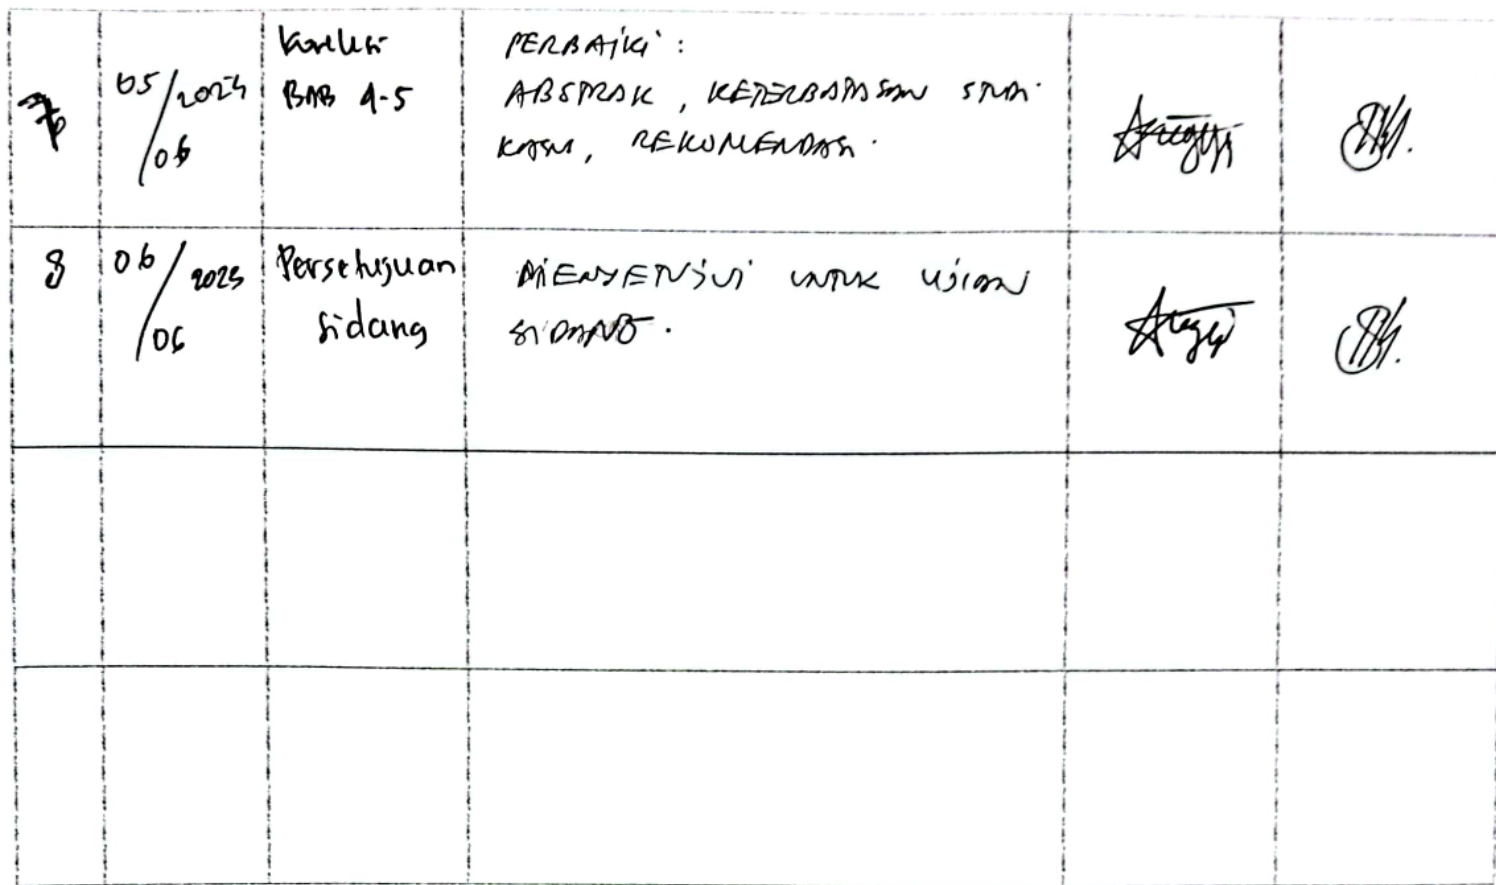 7
05/2025
/06
Koreksi
BAB 4-5
PERBAIKI :
ABSTRAK, KETERBATASAN STUDI
KASUS, REKOMENDASI.
8
06/2025
/06
Persetujuan
sidang
MENYETUJUI UNTUK UJIAN
SIDANG.